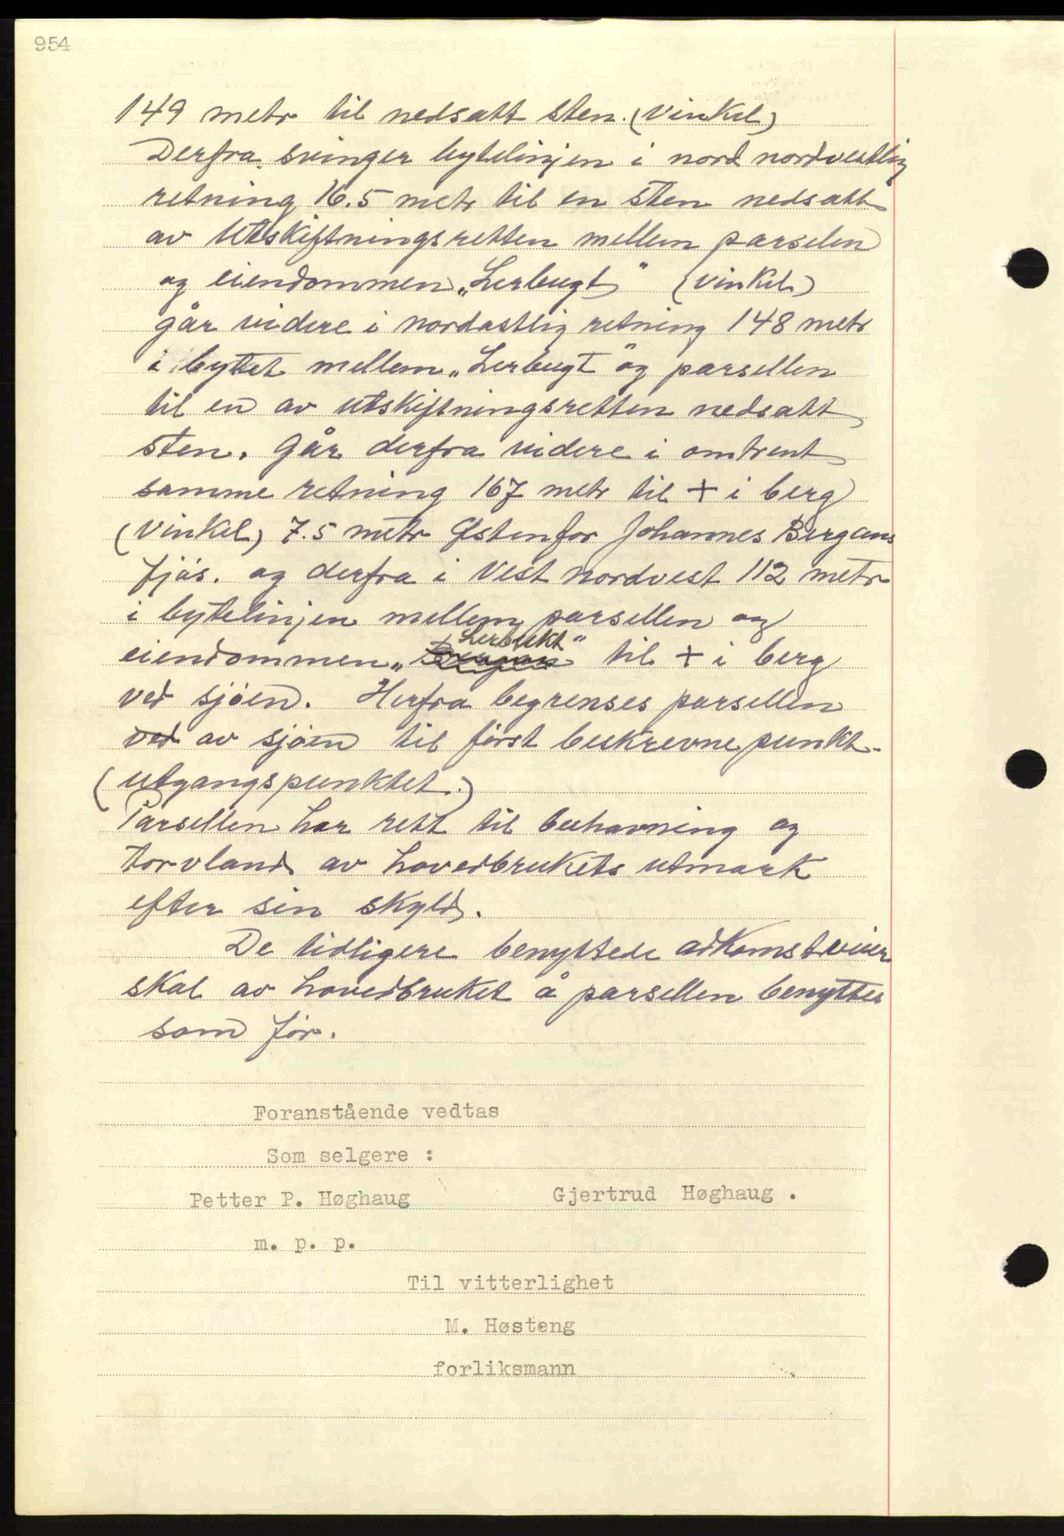 954
149 metr til nedsatt sten. (vinkel)
Derfra svinger bytelinjen i nord nordvestlig
retning 16.5 metr til en sten nedsatt
av Utskiftningsretten mellem parselen
og eiendommen „Lerbugt" (vinkel)
går videre i nordøstlig retning 148 metr
i byttet mellem „Lerbugt" og parsellen
til en av utskiftningsretten nedsatt
sten. Går derfra videre i omtrent
samme retning 167 metr til + i berg
(vinkel) 7.5 metr Østenfor Johannes Bergans
fjøs. og derfra i Vest nordvest 112 metr
i bytelinjen mellem parsellen og
eiendommen „Lerbukt" til + i berg
ved sjøen. Herfra begrenses parsellen
ved av sjøen til først beskrevne punkt.
(utgangspunktet.)
Parsellen har rett til buhavning og
torvland av hovedbrukets utmark
efter sin skyld.
De tidligere benyttede adkomstveier
skal av hovedbruket å parsellen benyttes
som før.
Foranstående vedtas
Som selgere :
Petter P. Høghaug Gjertrud Høghaug .
m. p. p.
Til vitterlighet
M. Høsteng
forliksmann